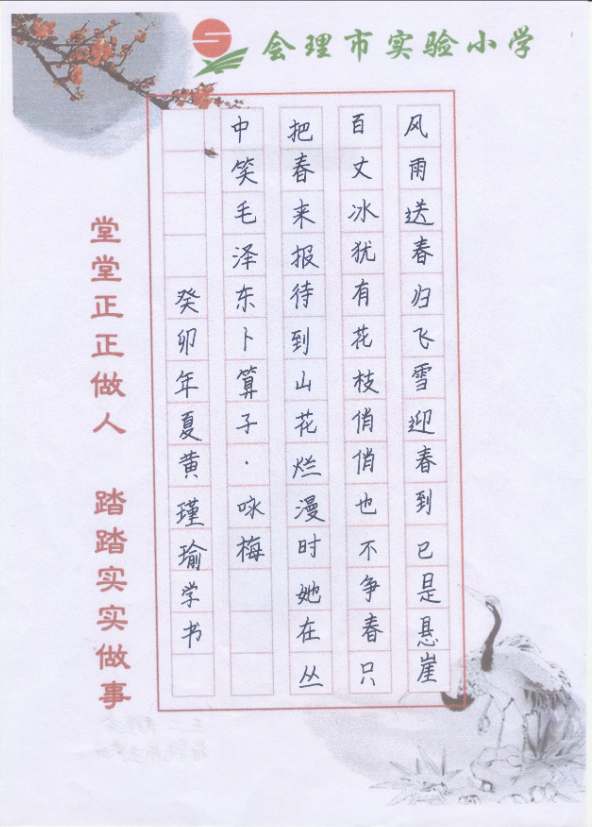 会理市实验小学
风雨送春归飞雪迎春到已是悬崖
百丈冰犹有花枝俏俏也不争春只
把春来报待到山花烂漫时她在丛
中笑毛泽东卜算子·咏梅
癸卯年夏黄瑾瑜学书
堂堂正正做人 踏踏实实做事